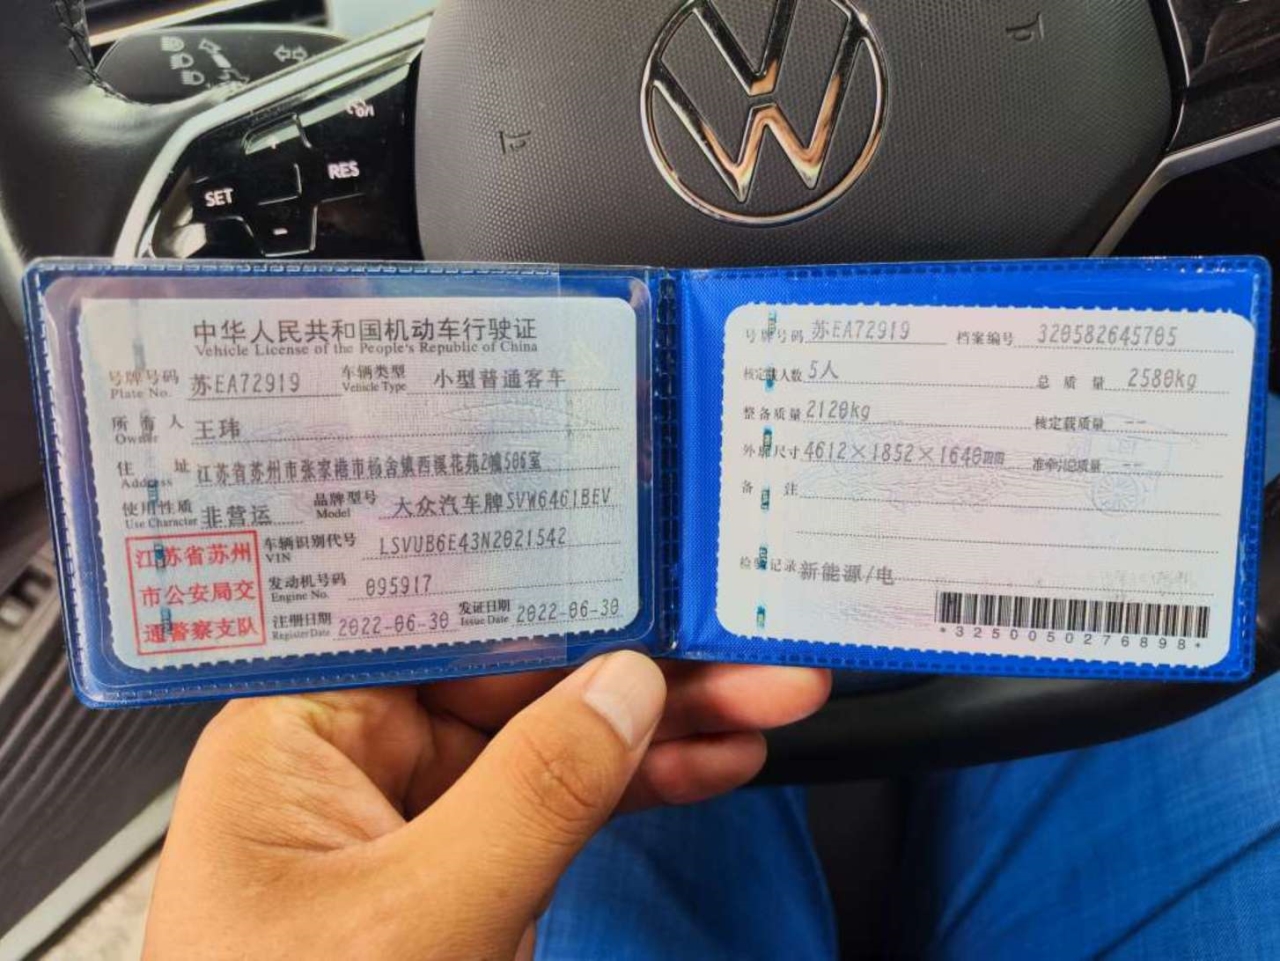 SET
RES
中华人民共和国机动车行驶证
Vehicle License of the People's Republic of China
号牌号码 苏EA72919 车辆类型 小型普通客车
Plate No. Vehicle Type
所有人 王玮
Owner
住址 江苏省苏州市张家港市杨舍镇西溪花苑2幢506室
Address
使用性质 非营运 品牌型号 大众汽车牌SVW6461BEV
Use Character Model
江苏省苏州
市公安局交
通警察支队
车辆识别代号 LSVUB6E43N2021542
VIN
发动机号码 095917
Engine No.
注册日期 2022-06-30 发证日期 2022-06-30
Register Date Issue Date
号牌号码 苏EA72919 档案编号 320582645705
核定载人数 5人 总质量 2580kg
整备质量 2120kg 核定载质量 --
外廓尺寸 4612×1852×1640mm 准牵引总质量 --
备注
检验记录 新能源/电
*3250050276898*